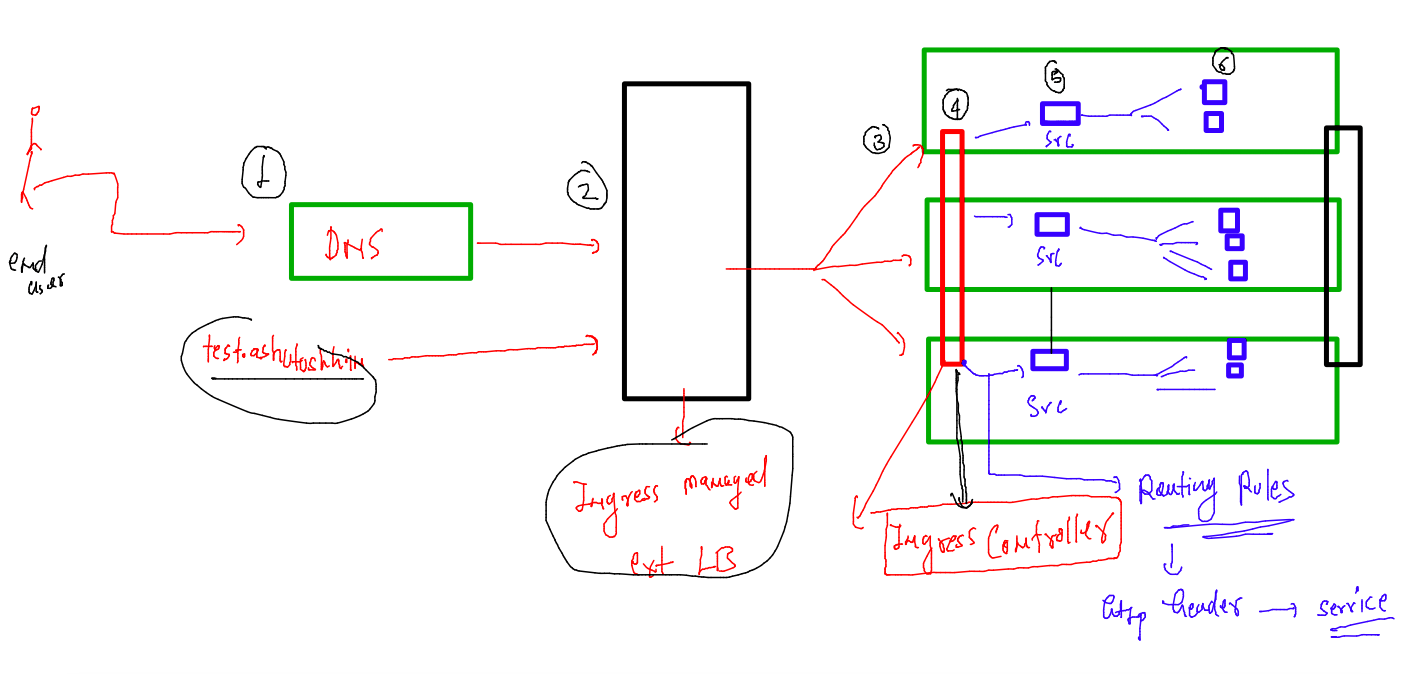 1
DNS
end
user
2
Ingress managed
ext LB
3
4
5
6
Src
Src
Src
Ingress Controller
Routing Rules
http header → service